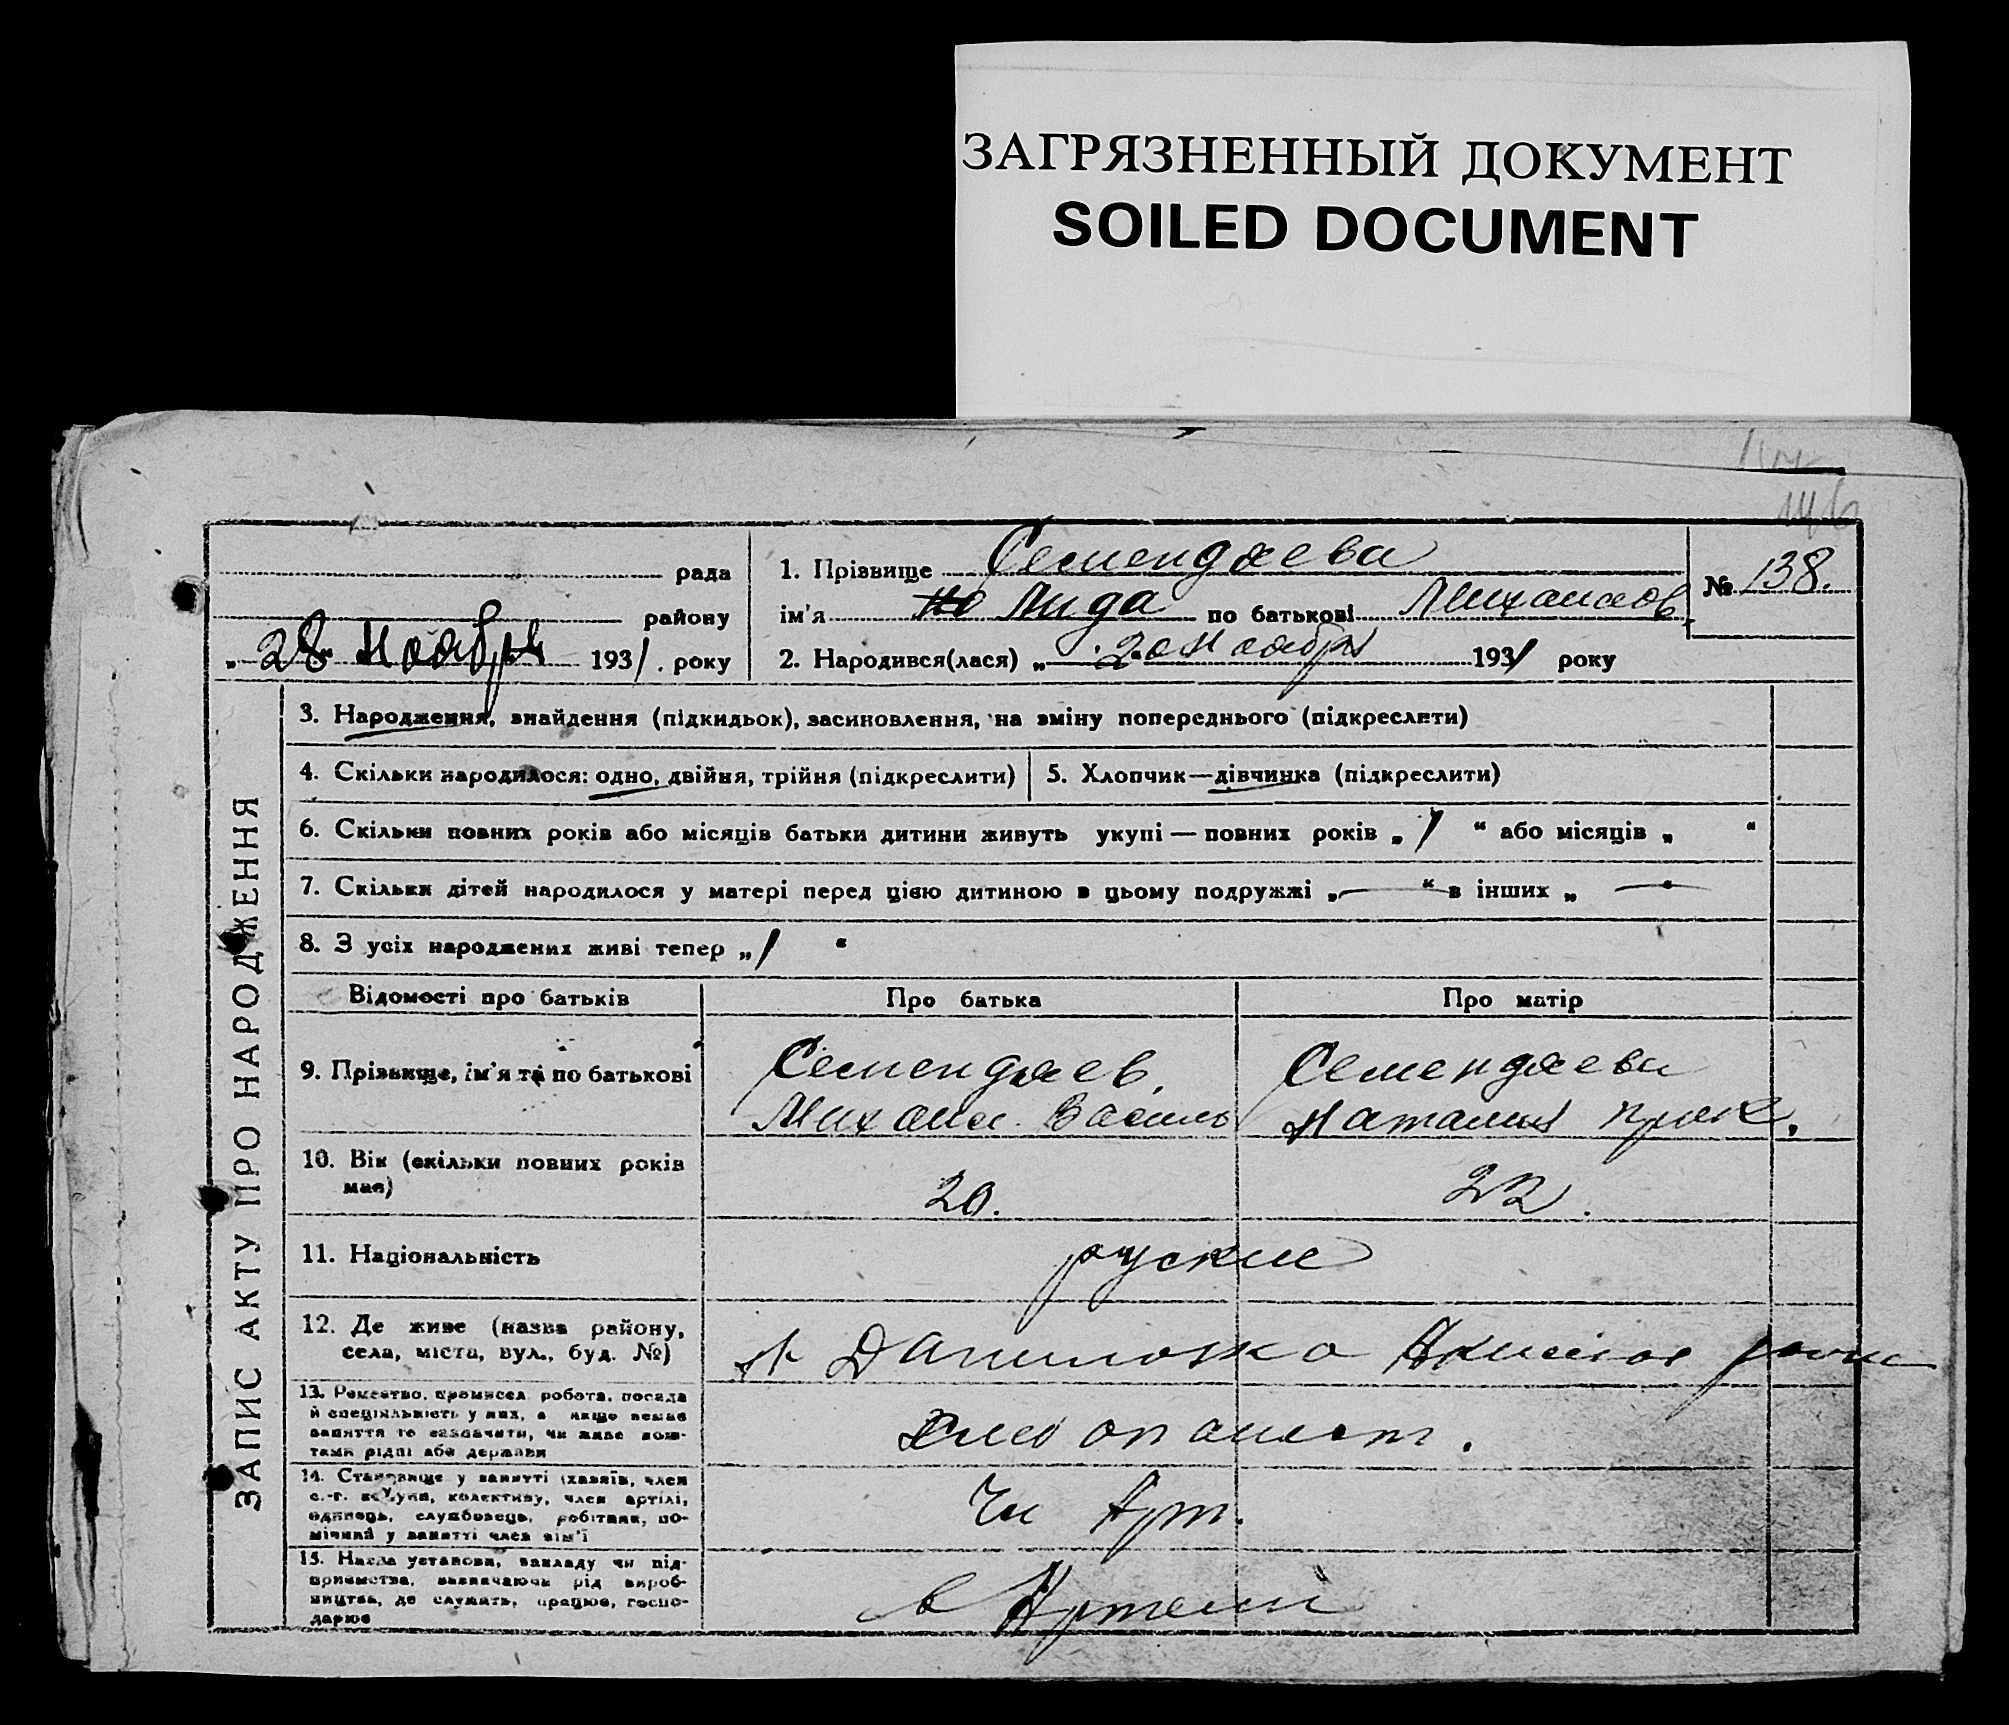 ЗАГРЯЗНЕННЫЙ ДОКУМЕНТ
SOILED DOCUMENT
146
рада
району
„28“ Ноября 1931. року
1. Прізвище Семендяева
ім'я Лида по батькові Михайлов.
№ 138.
2. Народився(лася) „20“ Ноября 1931 року
ЗАПИС АКТУ ПРО НАРОДЖЕННЯ
3. Народження, знайдення (підкидьок), засиновлення, на зміну попереднього (підкреслити)
4. Скільки народилося: одно, двійня, трійня (підкреслити)
5. Хлопчик—дівчинка (підкреслити)
6. Скільки повних років або місяців батьки дитини живуть укупі — повних років „1“ або місяців „ “
7. Скільки дітей народилося у матері перед цією дитиною в цьому подружжі „—“ в інших „—“
8. З усіх народжених живі тепер „1 “
Відомості про батьків
Про батька
Про матір
9. Прізвище, ім'я та по батькові
Семендяев,
Михаил Василь
Семендяева
Наталия Прок.
10. Вік (скільки повних років
має)
20.
22.
11. Національність
руские
12. Де живе (назва району,
села, міста, вул., буд. №)
Даниловка
13. Ремество, промисел, робота, посада
й спеціяльність у них, а якщо немає
заняття то зазначити, чи живе кош-
тами рідні або держави
14. Становище у занятті (хазяїн, член
с.-г. комуни, колективу, член артілі,
одинець, службовець, робітник, по-
мічний у занятті член сім'ї
Чл Арт.
15. Назва установи, закладу чи під-
приємства, визначаючи рід вироб-
ництва, де служить, працює, госпо-
дарює
в Артели